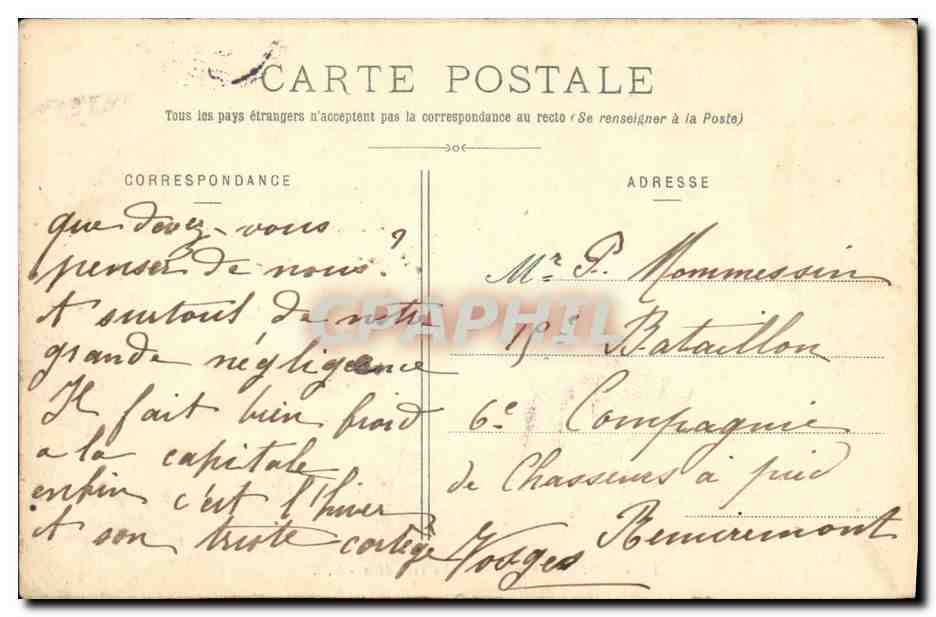 CARTE POSTALE
Tous les pays étrangers n'acceptent pas la correspondance au recto (Se renseigner à la Poste)
CORRESPONDANCE
que devez-vous
penser de nous?
et surtout de notre
grande négligence
Il fait bien froid
a la capitale
enfin c'est l'hiver
et son triste cortège
ADRESSE
Mr P. Mommessin
15e Bataillon
6e Compagnie
de Chasseurs à pied
Remiremont
Vosges
CPAPHIL